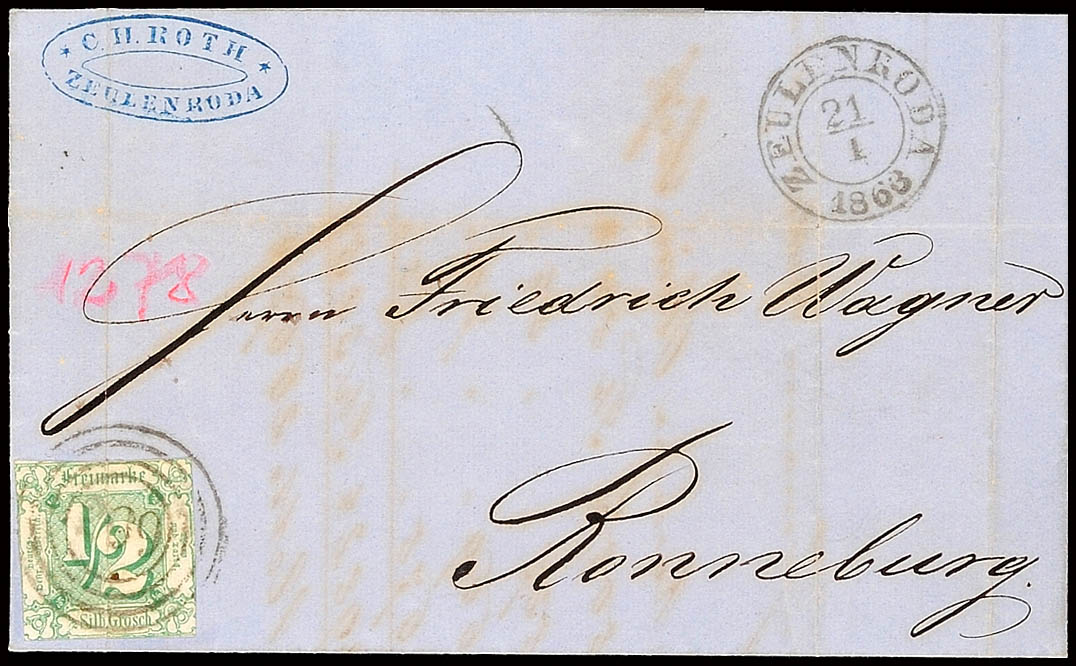 * C. H. ROTH *
ZEULENRODA
ZEULENRODA
21
1
1863
1278
Herrn Friedrich Wagner
Ronneburg.
Freimarke
1/2
Silb. Grosch.